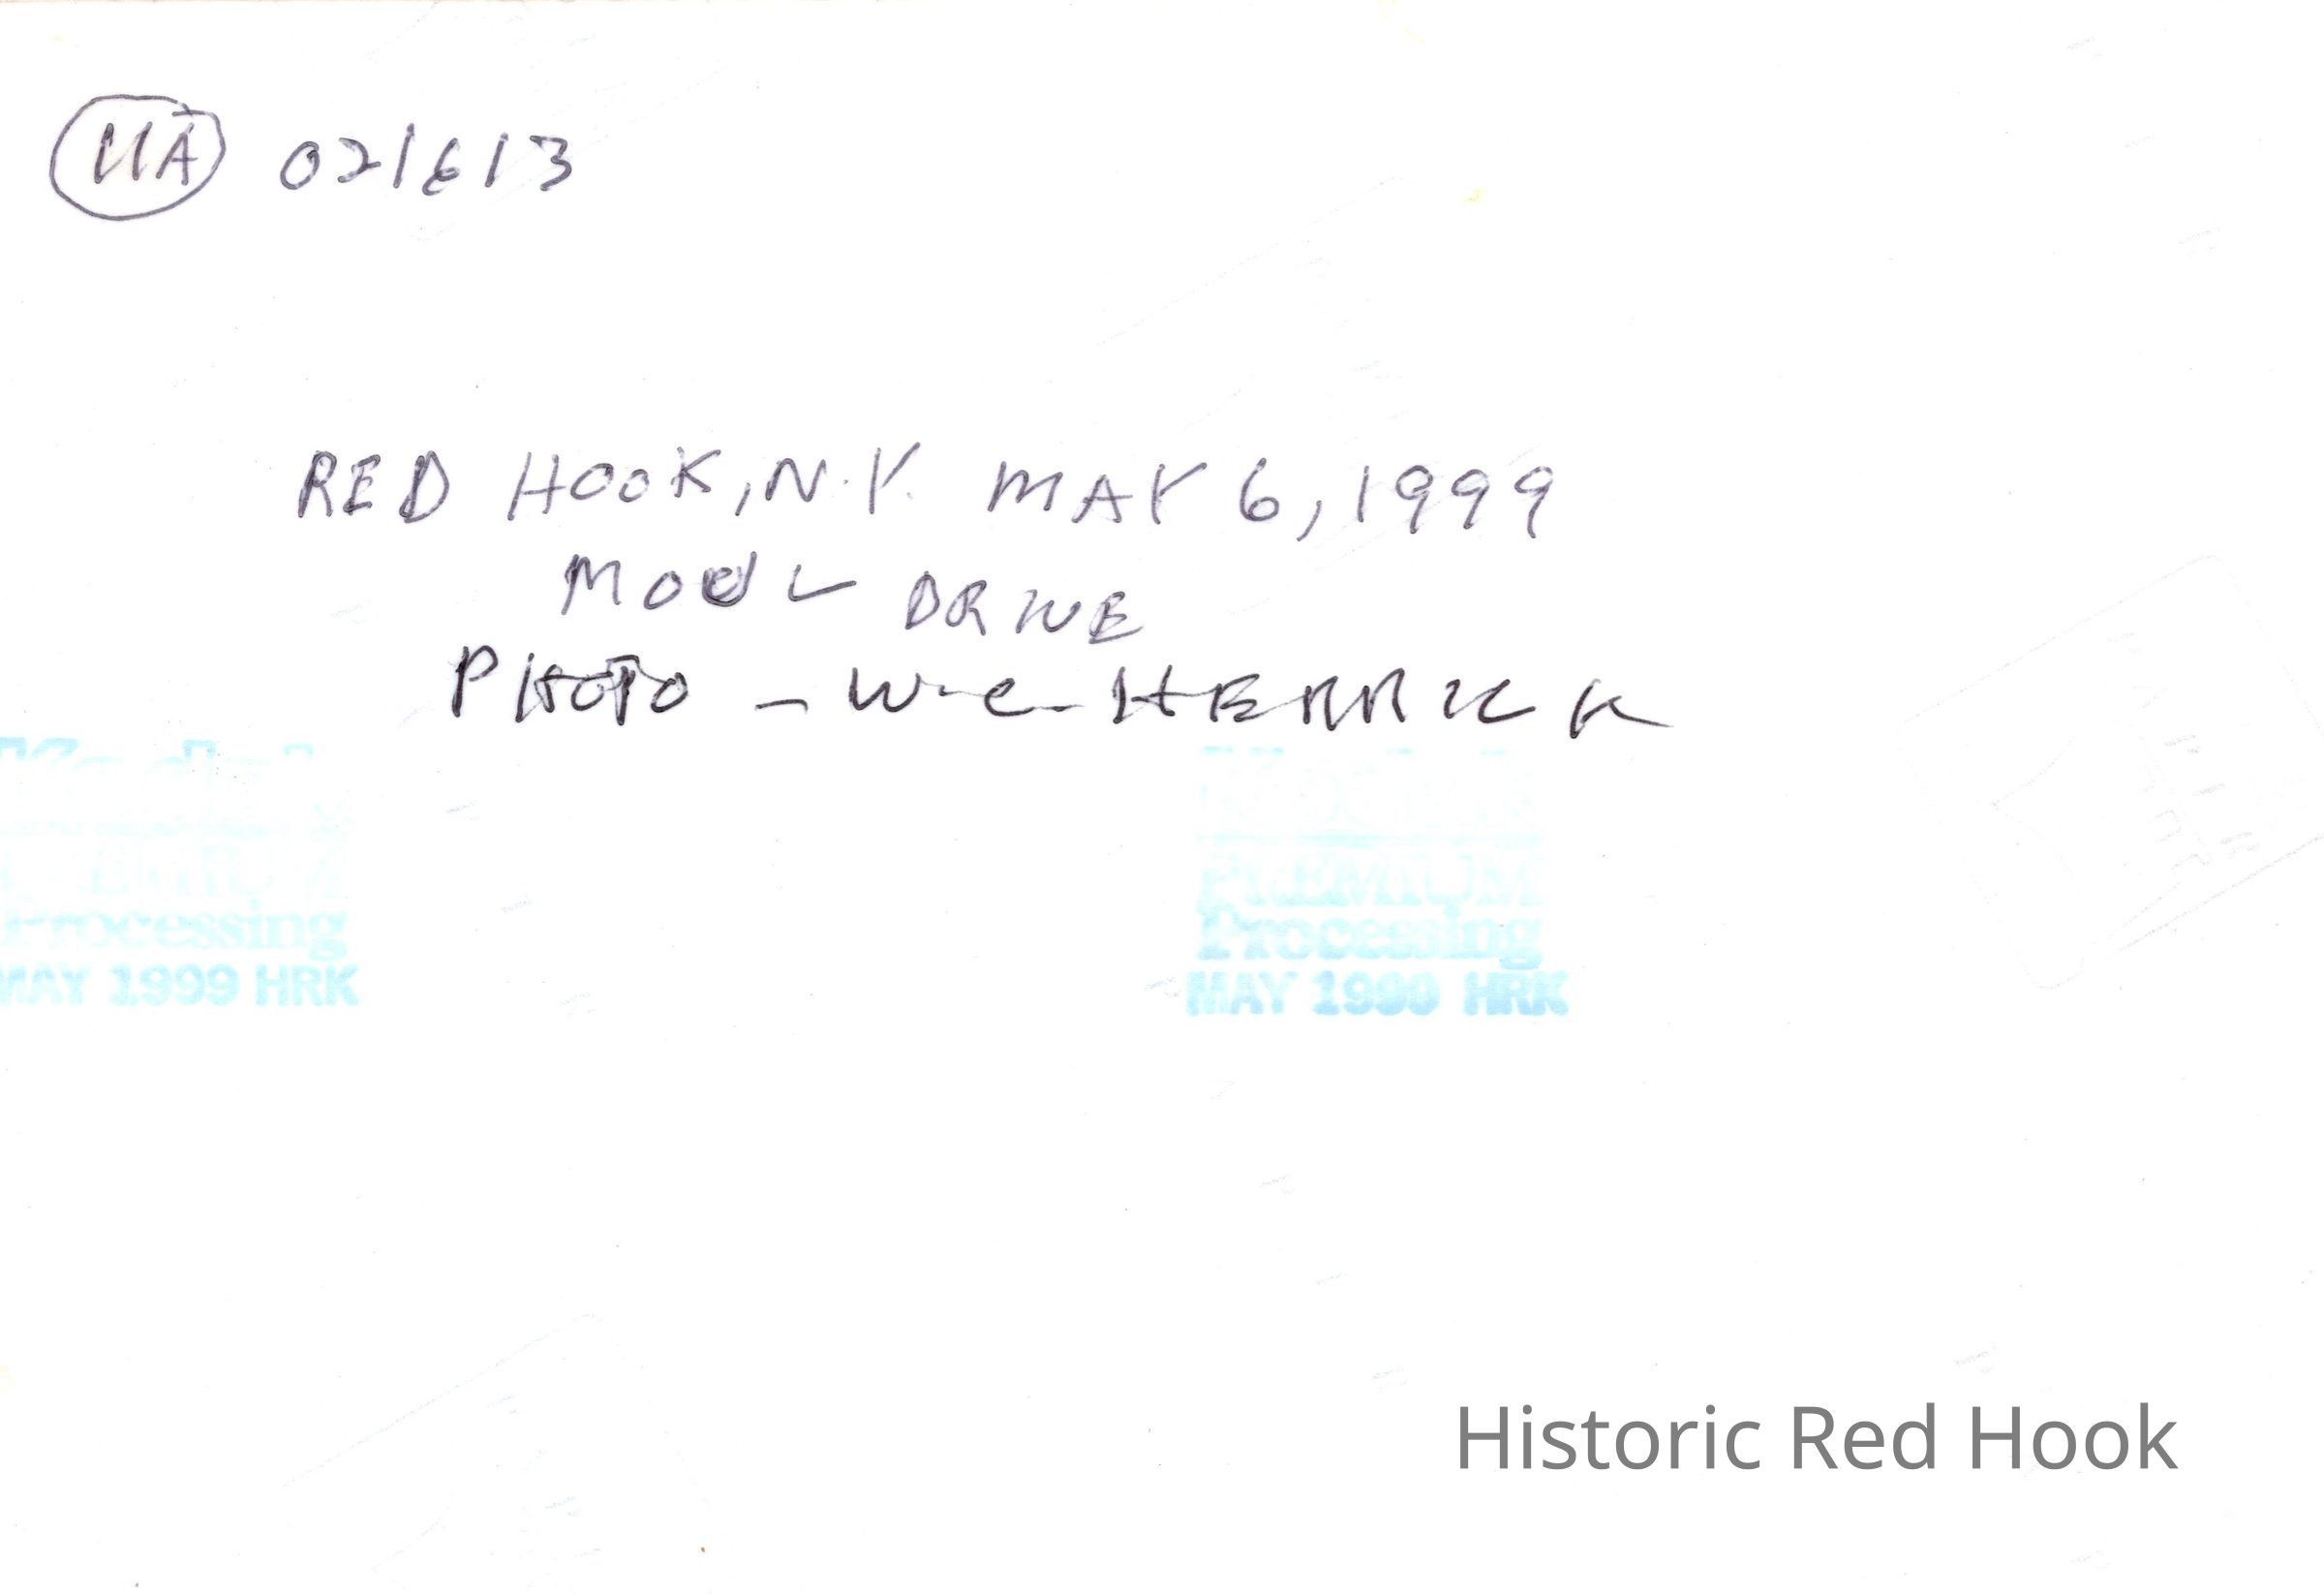 11A 021613
RED HOOK, N.Y. MAY 6, 1999
DRIVE
PHOTO - W-C- HERRICK
Kodak
PREMIUM
Processing
MAY 1999 HRK
PREMIUM
Processing
MAY 1999 HRK
Historic Red Hook